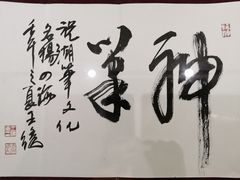 神筆
祝湖筆文化
名揚四海
壬午之夏王